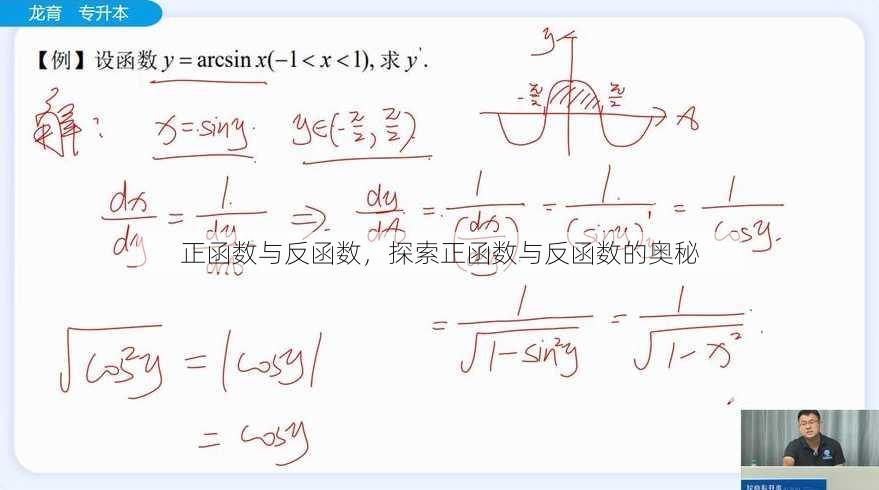 龙育 专升本
【例】设函数 y = arcsin x(−1 < x < 1), 求 y'.
解: x = sin y. y∈(-π/2, π/2)
y
-π/2 π/2
x
dx/dy = 1/(dy/dx) ⇒ dy/dx = 1/(dx/dy) = 1/(sin y)'y = 1/cos y.
正函数与反函数，探索正函数与反函数的奥秘
= 1/√(1-sin²y) = 1/√(1-x²).
√(cos²y) = |cos y|
= cos y